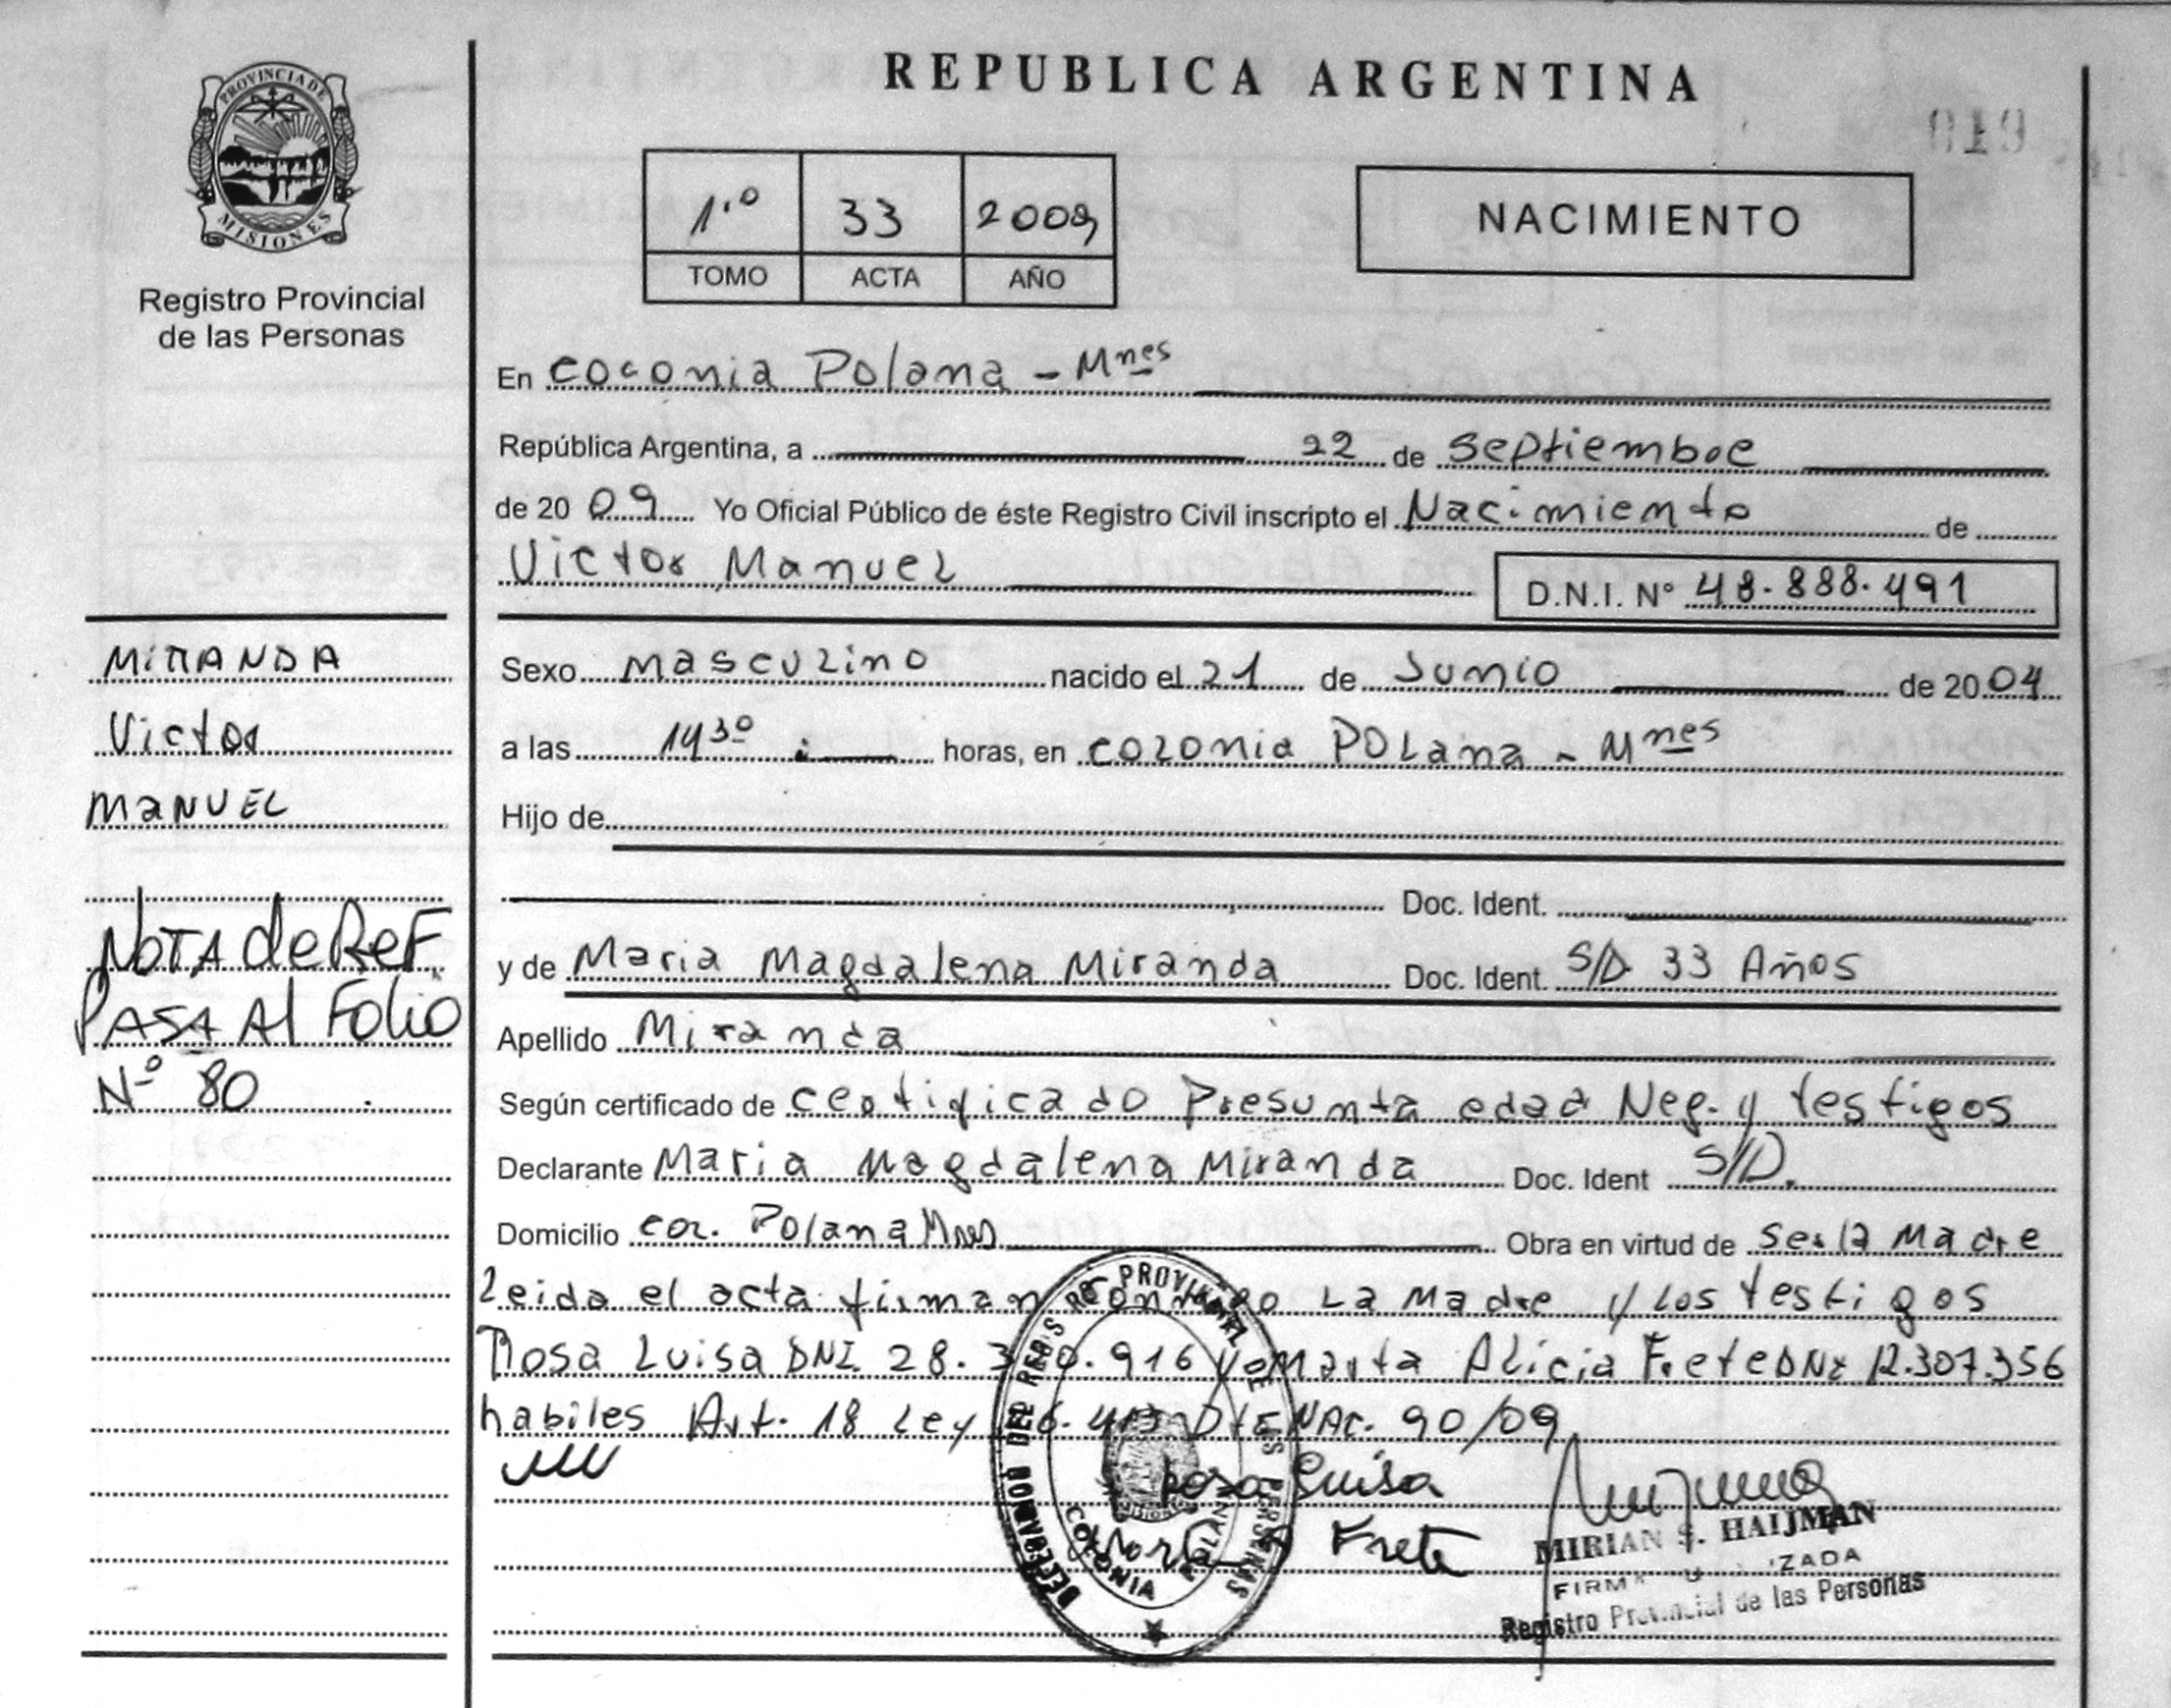 REPUBLICA ARGENTINA
PROVINCIA DE
MISIONES
Registro Provincial
de las Personas
1.º 33 2009
TOMO ACTA AÑO
NACIMIENTO
019
En Colonia Polana - Mnes
República Argentina, a 22 de Septiembre
de 20 09 Yo Oficial Público de éste Registro Civil inscripto el Nacimiento de
Victor Manuel D.N.I. Nº 48.888.491
MIRANDA
Victor
MANUEL
NOTA de ReF.
PASA Al Folio
Nº 80
Sexo masculino nacido el 21 de Junio de 20 04
a las 14 30 horas, en colonia Polana - Mnes
Hijo de
Doc. Ident.
y de Maria Magdalena Miranda Doc. Ident. S/D 33 Años
Apellido Miranda
Según certificado de certificado Presunta edad Neg. y testigos
Declarante Maria Magdalena Miranda Doc. Ident S/D.
Domicilio col. Polana Mnes Obra en virtud de Ser la Madre
Leida el acta firman conmigo La Madre y Los testigos
Rosa Luisa DNI 28. 916 Marta Alicia Frete DNI 12.307.356
habiles Art. 18 Ley 26.413 Dto NAC. 90/09
Rosa Luisa
Marta Frete
REGISTRO PROVINCIAL DE LAS PERSONAS
COLONIA POLANA
MIRIAN S. HAIJMAN
FIRMA
Registro Provincial de las Personas